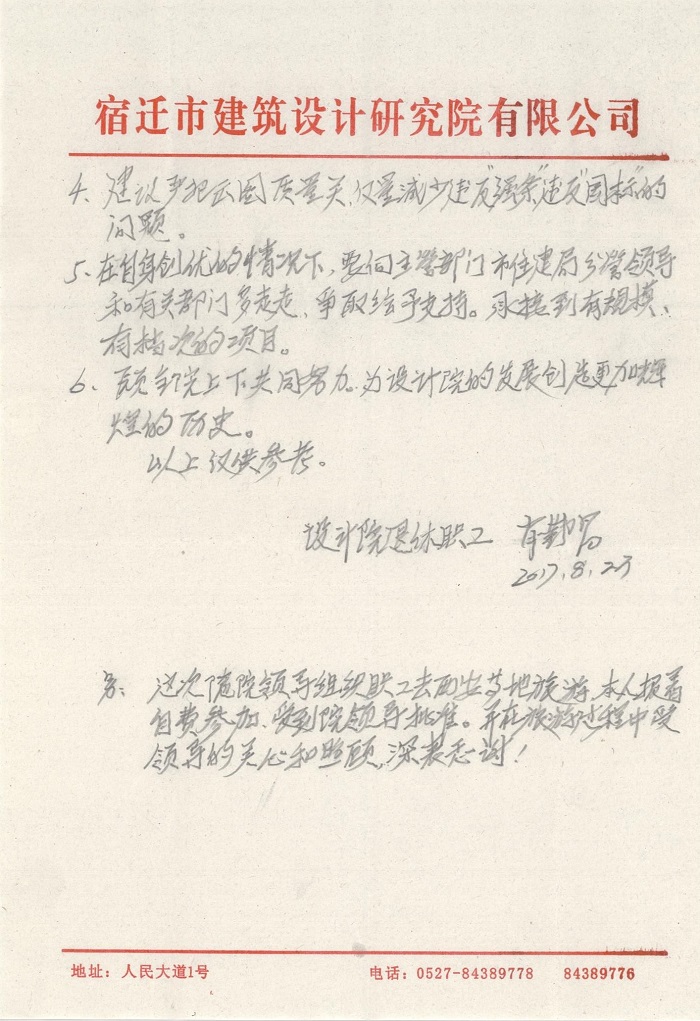 宿迁市建筑设计研究院有限公司
4、建议严把出图质量关,仅量减少违反"强条""违反"国标"的
问题。
5、在自身创优的情况下,要向主管部门市住建局分管领导
和有关部门多走走,争取给予支持。承接到有规模、
有档次的项目。
6、院上下共同努力,为设计院的发展创造更加辉
煌的历史。
以上仅供参考。
设计院退休职工
2017.8.23
另:这次随院领导组织职工去西安等地旅游,本人报着
自费参加,收到院领导批准。并在旅游过程中受
领导的关心和照顾,深表感谢!
地址:人民大道1号 电话:0527-84389778 84389776